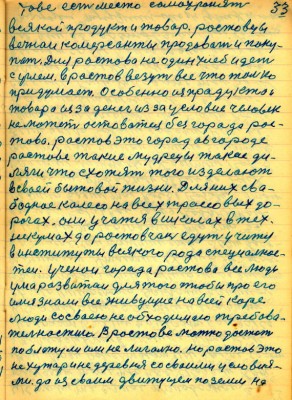 33
тове есть место самохранят
всякой продукт и товар. ростовцы
вечнаи комерсанты продовать и поку-
пат. Для растова не один хлеб идет
с улем, в растов везут все что только
придумает. Особенно из продуктов
товара из за денег из за условие человек
не может остоватся без города рос-
това. растов это город ав городе
растове такие мудрецы такае ди-
ляги что схотят того изделают
всваей бытовой жизни. Для них сва-
бодное колесо на всех трассовых до-
рогах. они учатся в школах в тех.
никумах до ростовчан едут учится
в институты всякого рода специалнос-
теи. ученои города растова все люди
ума развитаи для того чтобы про его
имя знали все живущие на всей
люди сосваею необходимаю требова-
телностию. В ростове можно достат
по блату или не лигално. но растов это
не хутар и не деревня со своими условия-
ми. да из сваим движущем поземли на